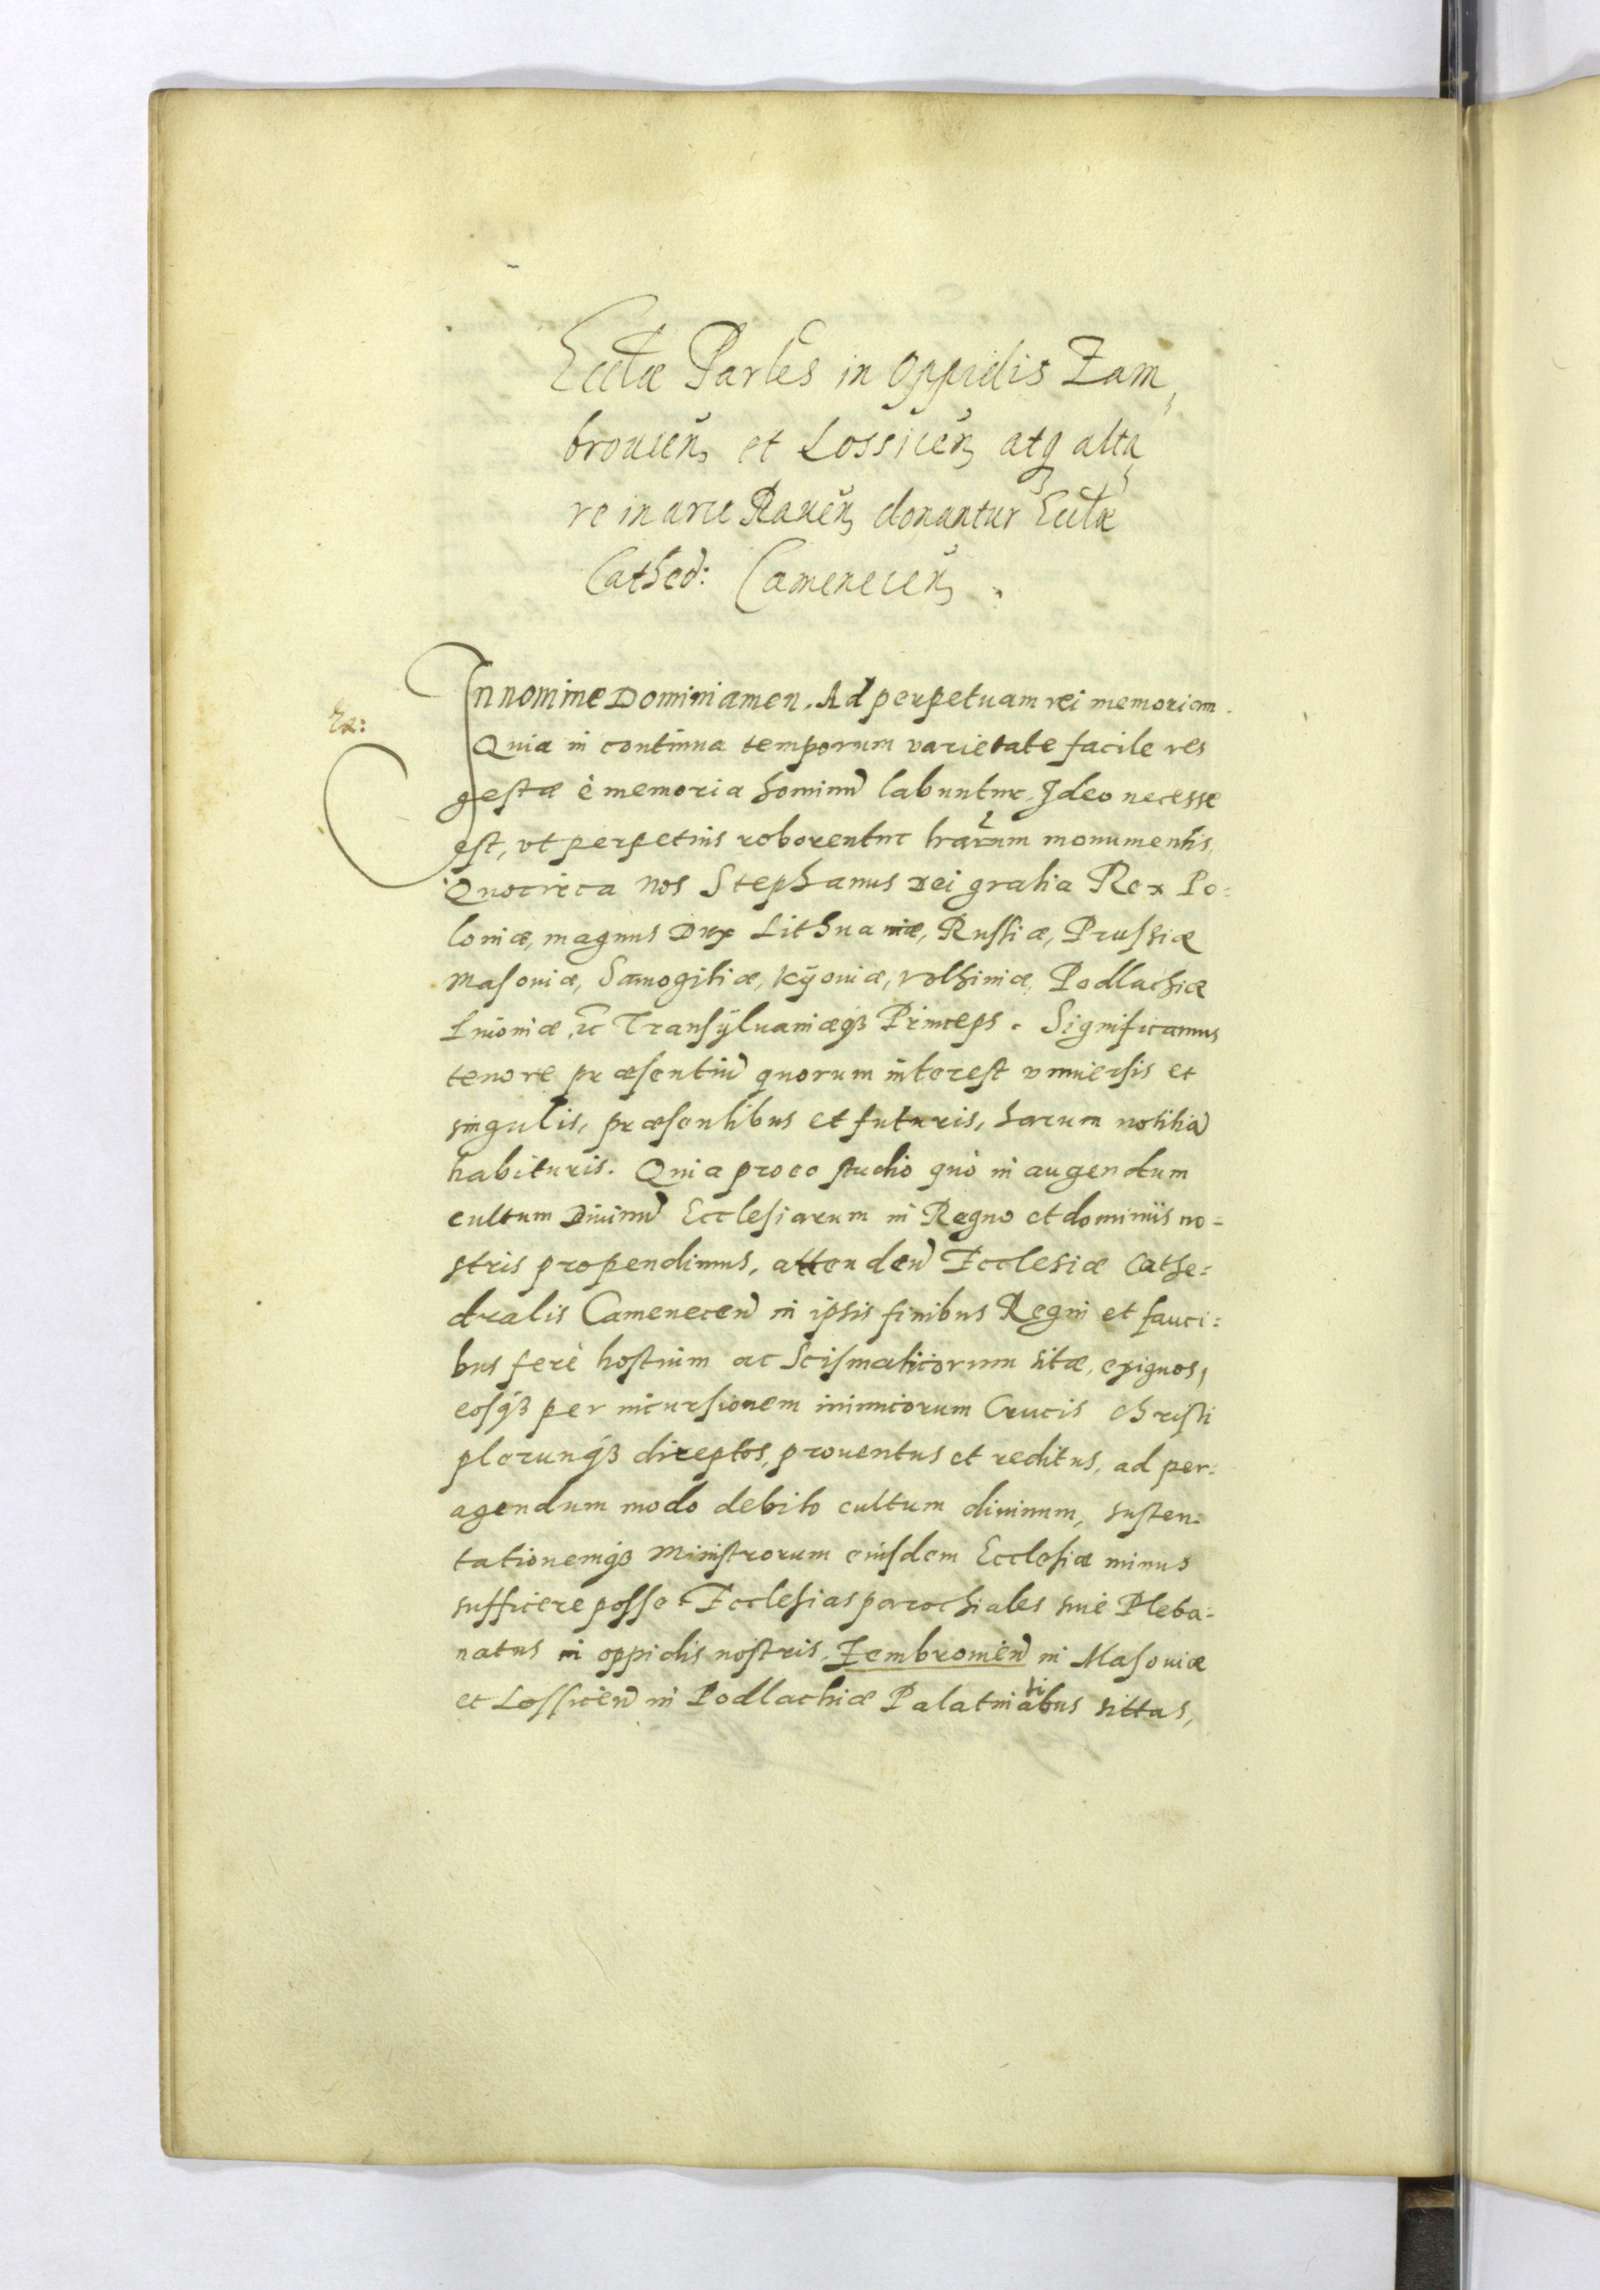 Ecclæ Parles in oppidis Zam,
brouień, et Lossicen, atq alta,
re in arce Raueń, donantur Ecclæ
Cathed: Camenecen,.
In nomine Domini amen. Ad perpetuam rei memoriam.
Quia in continua temporum varietate facile res
gestæ è memoria hominũ labuntur. Ideo necesse
est, vt perpetuis roborentur lrarum monumentis.
Quocirca nos Stephanus Dei gratia Rex Po:
loniæ, magnus Dux Lithuaniæ, Russiæ, Prussiæ
Masoviæ, Samogitiæ, Kÿoviæ, volhiniæ, Podlachiæ
Livoniæ, ꝛc Transÿlvaniæqȝ Princeps. Significamus
tenore præsentiũ quorum interest vniuersis et
singulis, præsentibus et futuris, harum notitiã
habituris. Quia pro eo studio quò in augendum
cultum Diuinũ Ecclesiarum in Regno et dominiis no-
stris propendimus, attendeñ Ecclesiæ Cathe:
dralis Cameneceñ in ipsis finibus Regni et fauci:
bus ferè hostium ac Scismaticorum sitæ, exiguos,
eosqȝ per incursionem inimicorum Crucis Christi
plerunqȝ direptos, prouentus et reditus, ad per:
agendum modo debito cultum diuinum, susten:
tationemqȝ Ministrorum eiusdem Ecclesiæ minus
sufficere posse. Ecclesias parochiales siuè Pleba:
natus in oppidis nostris Zembromień in Masouiæ
et Lossiceñ in Podlachiæ Palatinatibus sittas,